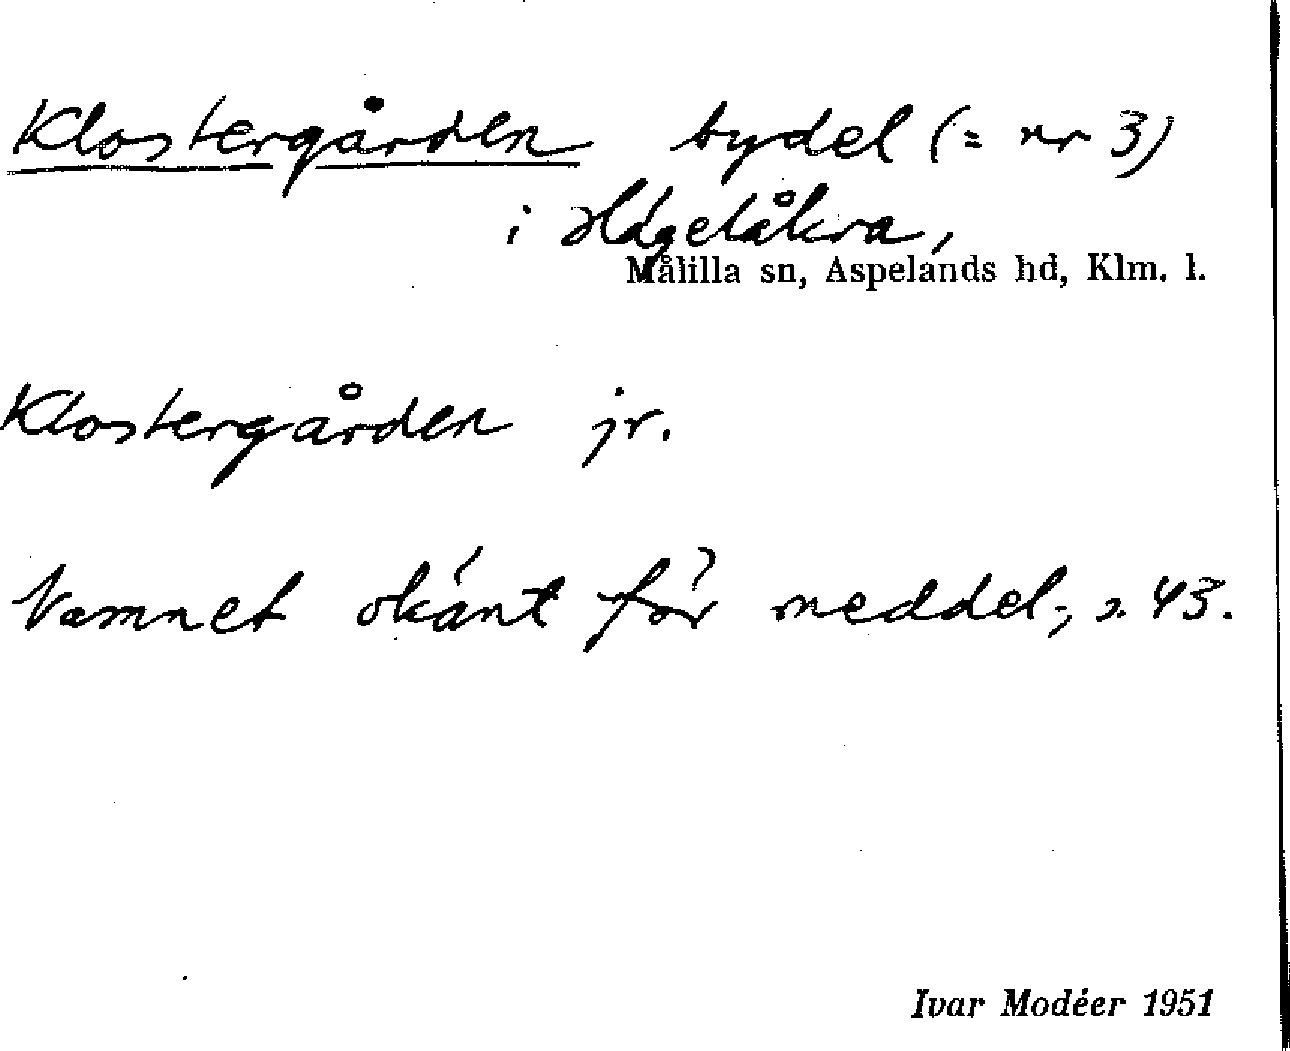 Klostergården bydel (= nr 3)
i Hägelåkra,
Målilla sn, Aspelands hd, Klm. l.
Klostergården jr.
Namnet okänt för meddel., s. 43.
Ivar Modéer 1951